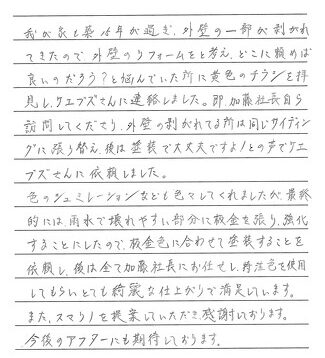 我が家も築15年が過ぎ、外壁の一部が剥がれ
てきたので、外壁のリフォームをと考え、どこに頼めば
良いのだろう？と悩んでいた所に黄色のチラシを拝
見し、ウエブズさんに連絡しました。即、加藤社長自ら
訪問してくださり、外壁の剥がれてる所は同じサイディン
グに張り替え、後は塗装で大丈夫ですよ！との声でウエ
ブズさんに依頼しました。
色のシュミレーションなども色々してくれましたが、最終
的には、雨水で壊れやすい部分に板金を張り、強化
することにしたので、板金色に合わせて塗装することを
依頼し、後は全て加藤社長にお任せし、特注色を使用
してもらいとても綺麗な仕上がりで満足しています。
また、スマリノを提案していただき、感謝しております。
今後のアフターにも期待しております。